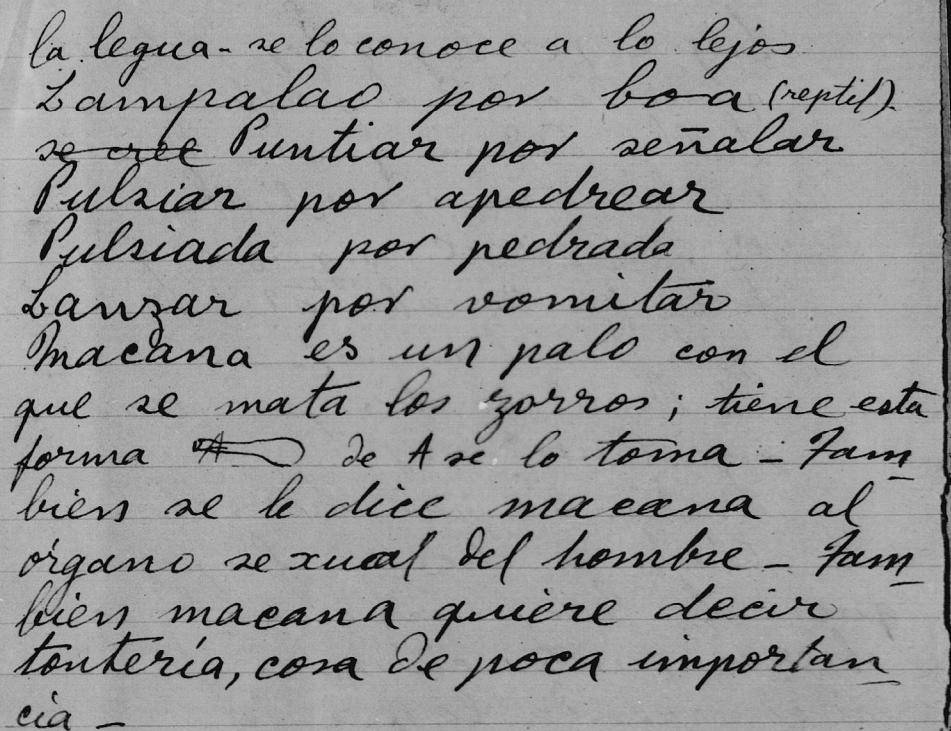 la legua - se lo conoce a lo lejos
Lampalao por boa (reptil)
se cree Puntiar por señalar
Pulsiar por apedrear
Pulsiada por pedrada
Lanzar por vomitar
Macana es un palo con el
que se mata los zorros; tiene esta
forma A de A se lo toma - Tam
bien se le dice macana al
órgano sexual del hombre - Tam
bien macana quiere decir
tontería, cosa de poca importan
cia -